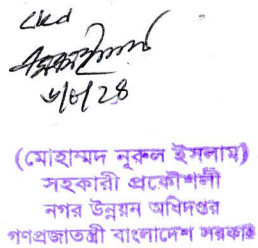 ৬/৮/২৪
(মোহাম্মদ নূরুল ইসলাম)
সহকারী প্রকৌশলী
নগর উন্নয়ন অধিদপ্তর
গণপ্রজাতন্ত্রী বাংলাদেশ সরকার